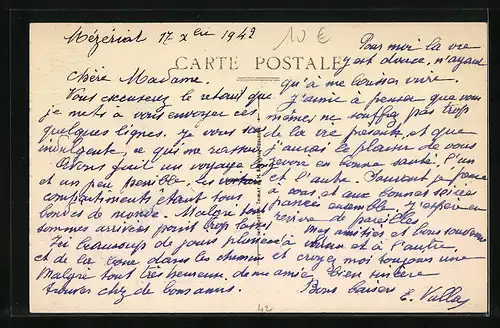 Mézériat 17 xbre 1942
10 €
CARTE POSTALE
Chère Madame.
Vous excuserez le retard que
je mets à vous envoyer ces
quelques lignes. Je vous sais
indulgente, ce qui me rassure
Avons fait un voyage
et un peu pénible, les
compartiments étant tous
bondés de monde. Malgré tout
sommes arrivées point trop lasses
Ici beaucoup de jours pluvieux
et de la boue dans les chemins
Malgré tout très heureuse, de me
trouver chez de bons amis.
Pour moi la vie
y est douce, n'ayant
qu'à me laisser vivre.
J'aime à penser que vous
mêmes ne souffrez pas trop
de la vie présente, et que
j'aurai le plaisir de vous
revoir en bonne santé l'un
et l'autre. Souvent je pense
à vous, et aux bonnes soirées
passées ensemble. J'espère en
revivre de pareilles
mes amitiés et bons souvenirs
à l'un et à l'autre.
et croyez moi toujours une
amie bien sincère
Bons baisers
E. Vallas
42